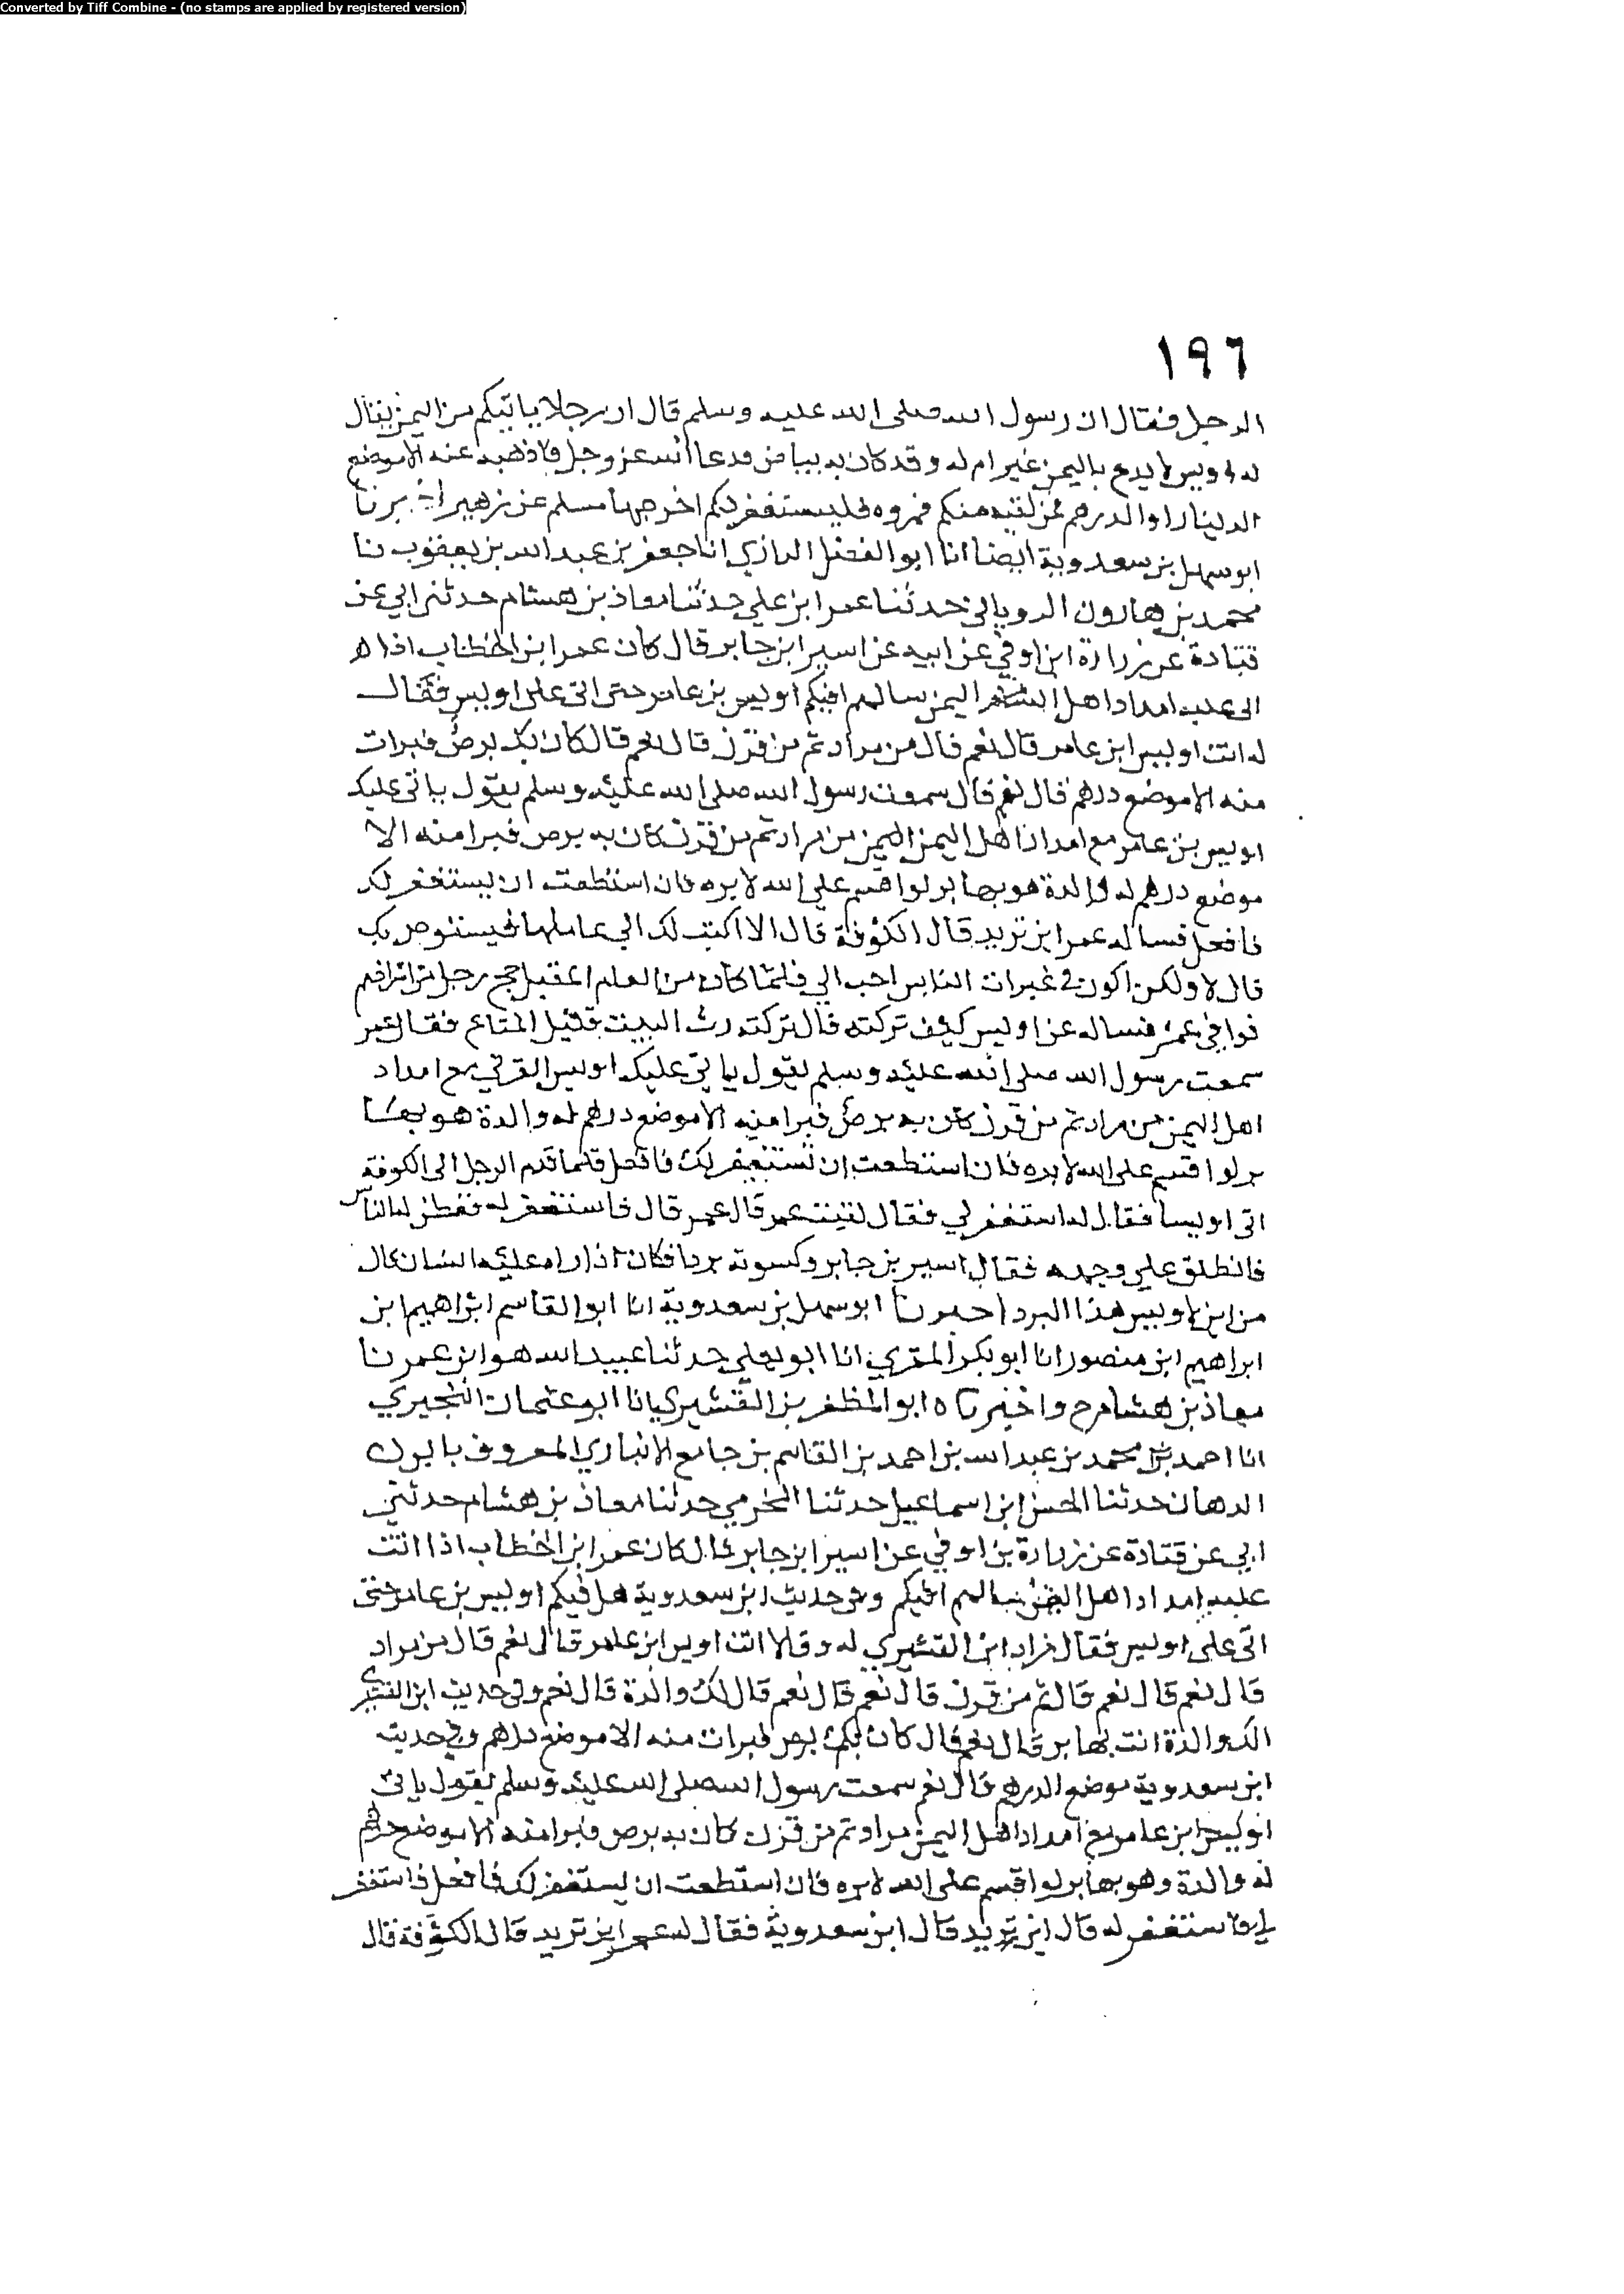 Converted by Tiff Combine - (no stamps are applied by registered version)
١٩٦
الرجل فقال ان رسول الله صلى الله عليه وسلم قال ان رجلا ياتيكم من اليمن يقال
له اويس لا يدع باليمن غير ام له وقد كان به بياض فدعا الله عز وجل فاذهبه عنه الا موضع
الدينار او الدرهم فمن لقيه منكم فمروه فليستغفر لكم اخرجهما مسلم عن زهير اخبرنا
ابو سهل بن سعدوية ايضا انا ابو الفضل الرازي انا جعفر بن عبد الله بن يعقوب نا
محمد بن هارون الروياني حدثنا عمرا بن علي حدثنا معاذ بن هشام حدثني ابي عن
قتادة عن زرارة ابن اوفي عن ابيه عن اسير ابن جابر قال كان عمر ابن الخطاب اذا
اتى عليه امداد اهل اليمن سالهم افيكم اويس بن عامر حتى اتى على اويس فقال
له انت اويس ابن عامر قال نعم قال من مراد ثم من قرن قال نعم قال كان بك برص فبرات
منه الا موضع درهم قال نعم قال سمعت رسول الله صلى الله عليه وسلم يقول ياتى عليك
اويس بن عامر مع امداد اهل اليمن من مراد ثم من قرن كان به برص فبرا منه الا
موضع درهم له والدة هو بها بر لو اقسم على الله لابره فان استطعت ان يستغفر لك
فافعل فساله عمر اين تريد قال الكوفة قال الا اكتب لك الي عاملها فيستوص بك
قال لا ولكن اكون في غبرات الناس احب الي فلما كان من العام المقبل حج رجل من اشرافهم
فوافي عمر فساله عن اويس كيف تركته قال تركته رث البيت قليل المتاع فقال عمر
سمعت رسول الله صلى الله عليه وسلم يقول ياتي عليك اويس القرني مع امداد
اهل اليمن من مراد ثم من قرن كان به برص فبرا منه الا موضع درهم له والدة هو بها
بر لو اقسم على الله لابره فان استطعت ان تستغفر لك فافعل فلما قدم الرجل الى الكوفة
اتى اويسا فقال له استغفر لي فقال لقيت عمر قال عمر قال فاستغفر له ففطن له الناس
فانطلق على وجهه فقال اسير بن جابر وكسوته بردا فكان اذا راه عليه انسان قال
من اين لاويس هذا البرد اخبرنا ابو سهل بن سعدوية انا ابو القاسم ابراهيم ابن
ابراهيم ابن منصور انا ابو بكر المقري انا ابو يعلي حدثنا عبيد الله هو ابن عمر نا
معاذ بن هشام ح واخبرناه ابو المظفر بن القشيري انا ابو عثمان البحيري
انا احمد بن محمد بن عبد الله بن احمد بن القاسم بن جامع الانباري المعروف
الدهان حدثنا الحسن ابن اسماعيل حدثنا المخرمي حدثنا معاذ بن هشام حدثني
ابي عن قتادة عن زرارة بن اوفي عن اسير ابن جابر قال كان عمر ابن الخطاب اذا اتت
عليه امداد اهل اليمن سالهم افيكم وفي حديث ابن سعدوية هل فيكم اويس بن عامر حتى
اتى على اويس فقال زاد ابن القشيري له وقالا انت اويس ابن عامر قال نعم قال من مراد
قال نعم قال نعم قال ثم من قرن قال نعم قال نعم قال لك والدة قال نعم وفي حديث ابن القشيري
الك والدة انت بها بر قال نعم قال كان بك برص فبرات منه الا موضع درهم وفي حديث
ابن سعدوية موضع الدرهم قال نعم سمعت رسول الله صلى الله عليه وسلم يقول ياتى
اويس ابن عامر مع امداد اهل اليمن مراد ثم من قرن كان به برص فبرا منه الا موضع درهم
له والدة وهو بها بر لو اقسم على الله لابره فان استطعت ان يستغفر لك فافعل فاستغفر
لي فاستغفر له قال اين تريد قال ابن سعدوية فقال له عمر اين تريد قال الكوفة قال